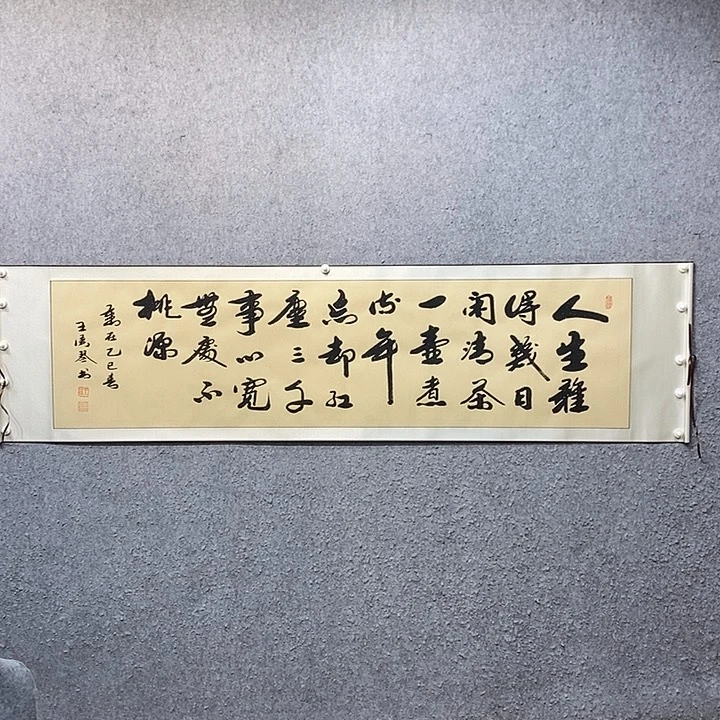 人生難
得幾日
閑清茶
一壺煮
流年
忘却紅
塵三千
事心寬
無處不
桃源
歲在乙巳春
王 琴书